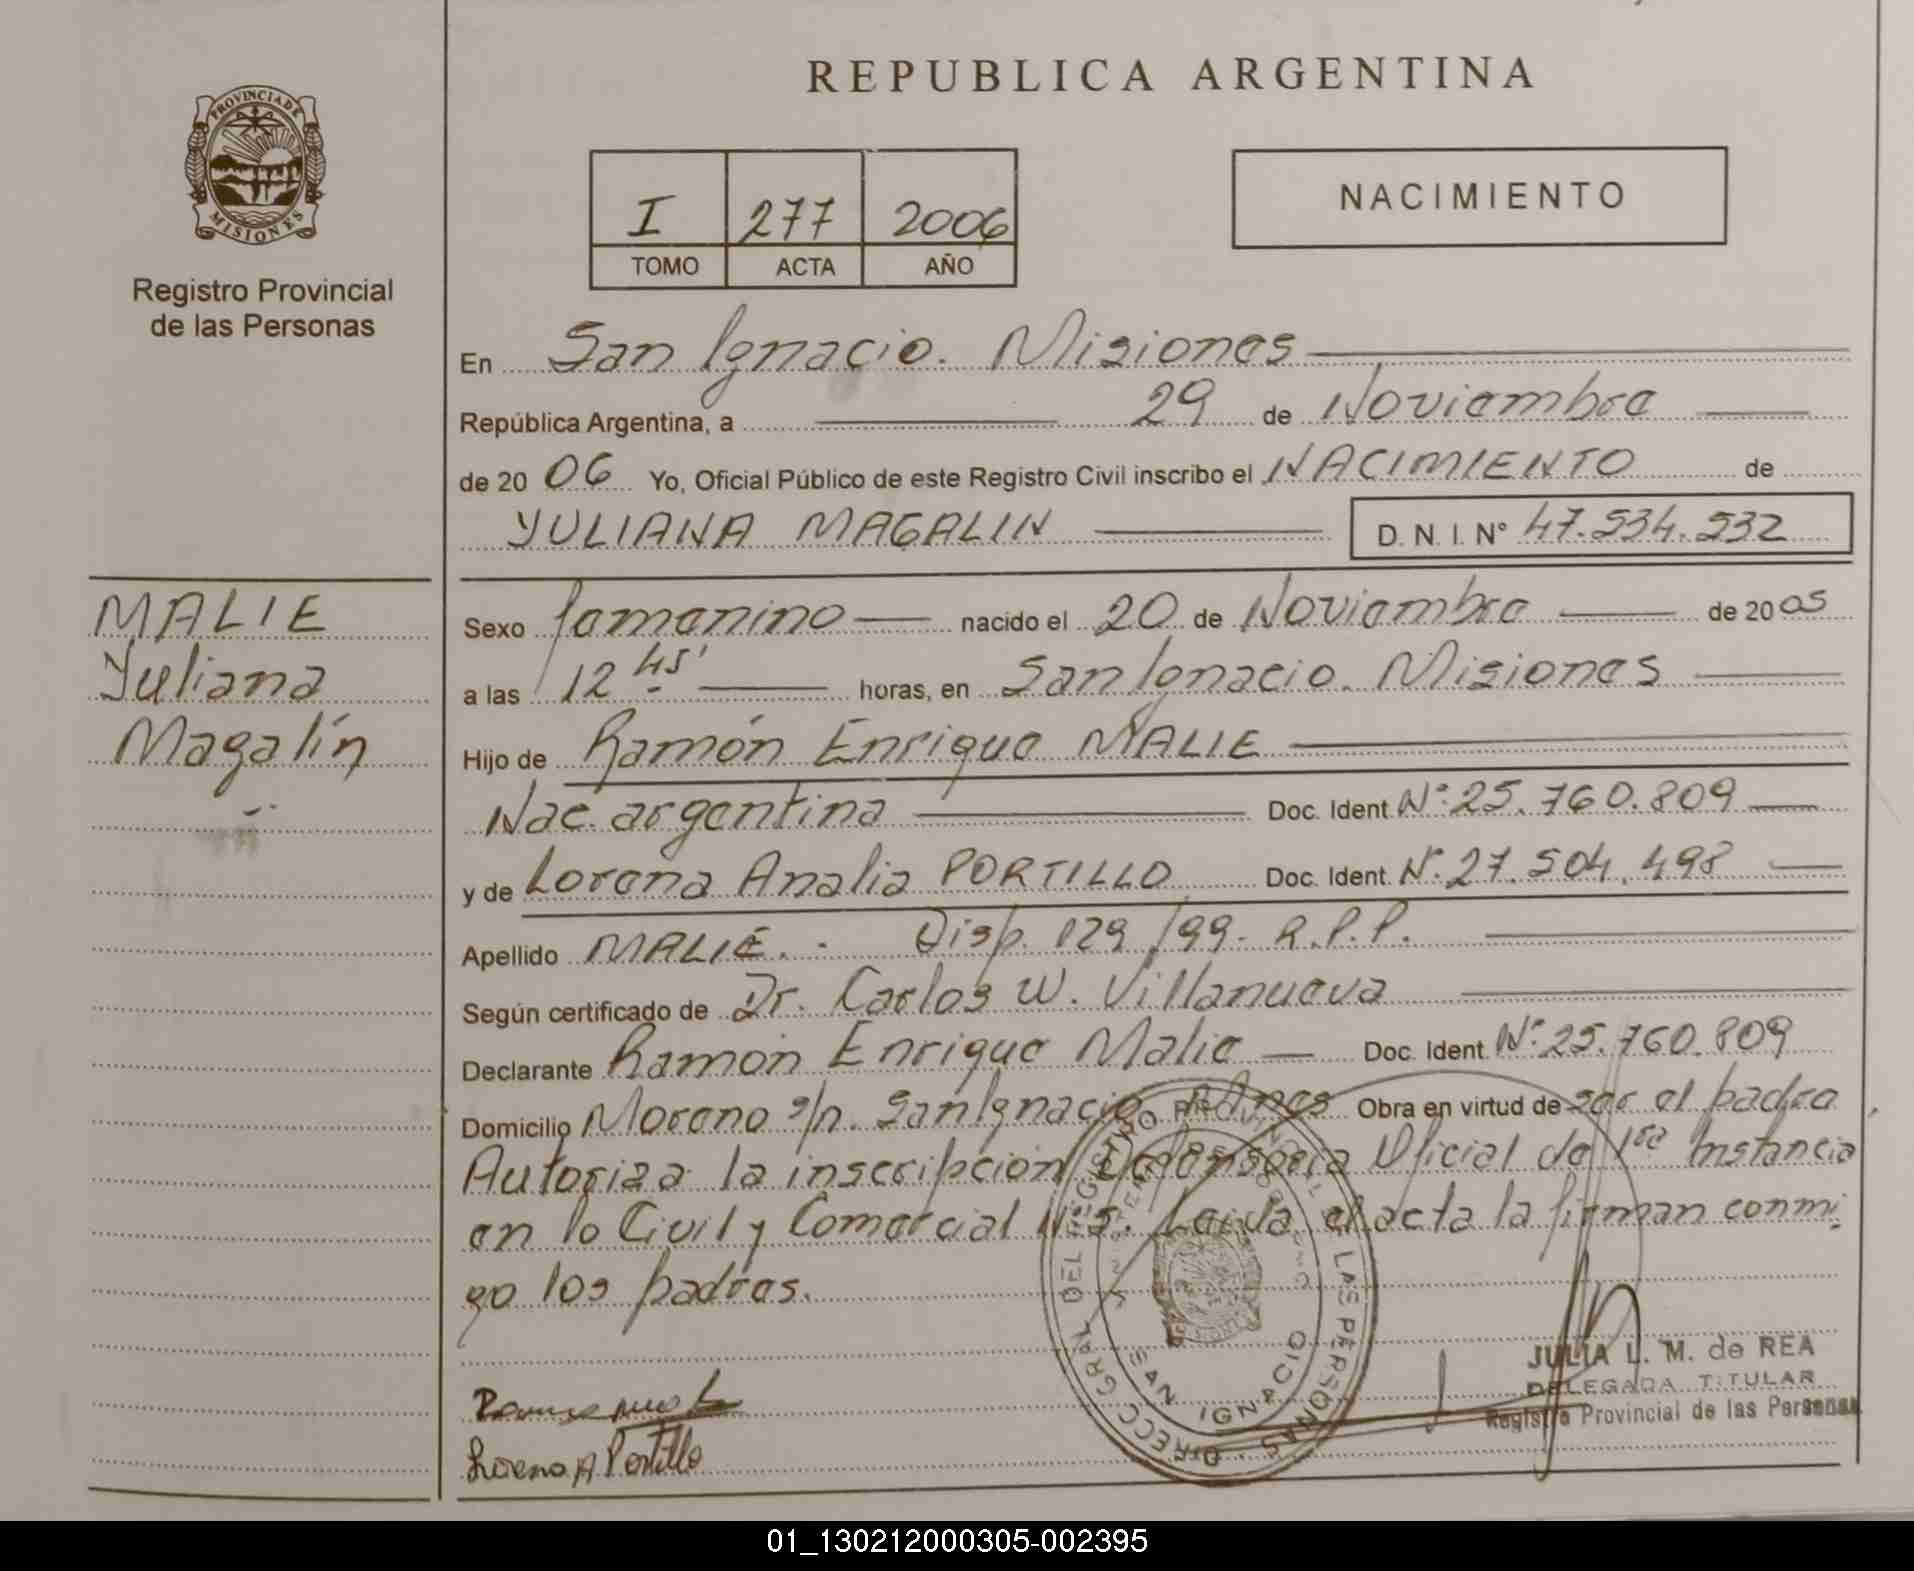 REPUBLICA ARGENTINA
PROVINCIA DE
MISIONES
Registro Provincial
de las Personas
I 277 2006
TOMO ACTA AÑO
NACIMIENTO
En San Ignacio. Misiones
República Argentina, a 29 de Noviembre
de 20 06 Yo, Oficial Público de este Registro Civil inscribo el NACIMIENTO de
YULIANA MAGALIN D. N. I. N° 47.534.532
MALIE
Yuliana
Magalín
Sexo femenino nacido el 20 de Noviembre de 20 05
a las 12 45' horas, en San Ignacio. Misiones
Hijo de Ramón Enrique MALIE
Nac. argentina Doc. Ident. N°: 25.760.809
y de Lorena Analia PORTILLO Doc. Ident. N°. 27.504.498
Apellido MALIE. - Disp. 129/99. R.P.P.
Según certificado de Dr. Carlos W. Villanueva
Declarante Ramón Enrique Malie Doc. Ident. N°: 25.760.809
Domicilio Moreno s/n. San Ignacio Mnes Obra en virtud de ser el padre
Autoriza la inscripción Defensoría Oficial de 1ra Instancia
en lo Civil y Comercial N°5. Leída el acta la firman conmi
go los padres.
DIRECC GRAL DEL REGISTRO PROVINCIAL DE LAS PERSONAS
SAN IGNACIO
JULIA L. M. de REA
DELEGADA TITULAR
Registro Provincial de las Personas
Lorena A Portillo
01_130212000305-002395